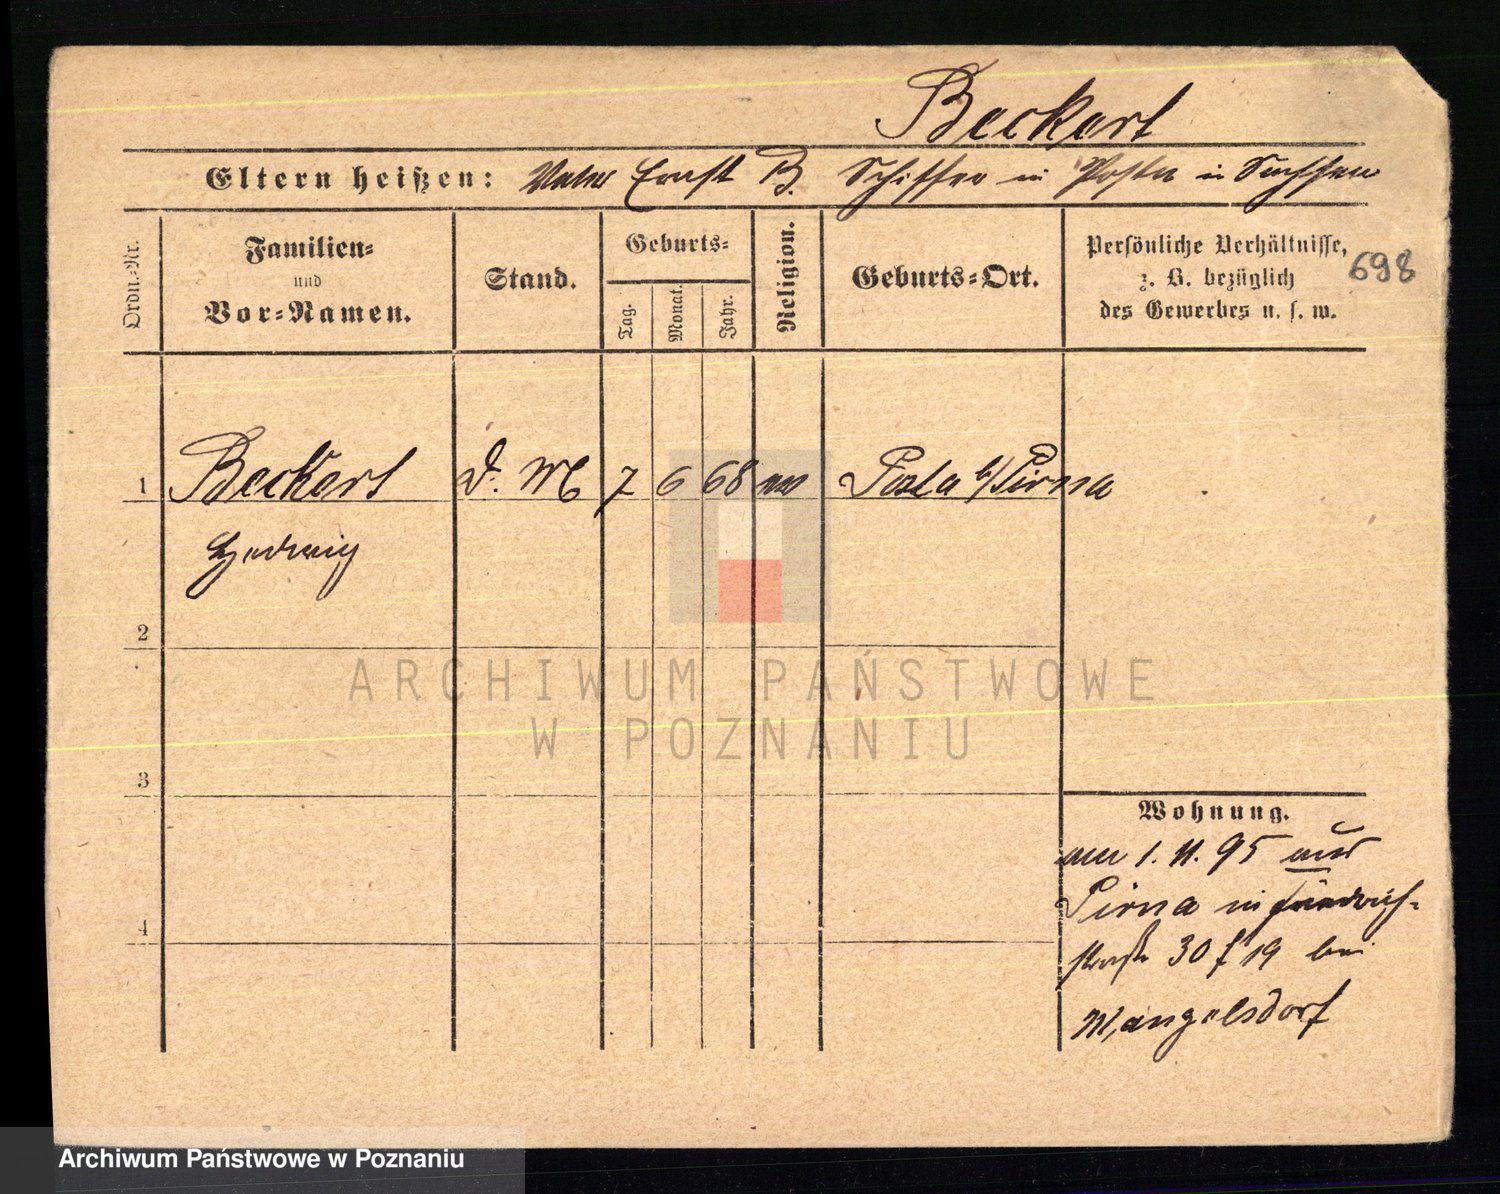 Beckert
Eltern heißen: Vater Ernst B. Schiffer in Posta in Sachsen
698
Ordn.-Nr.
Familien-
und
Vor-Namen.
Stand.
Geburts-
Tag.
Monat.
Jahr.
Religion.
Geburts-Ort.
Persönliche Verhältnisse,
z. B. bezüglich
des Gewerbes u. s. w.
1 Beckert D. M 7 6 68 ev Posta b/Pirna
Hedwig
2
ARCHIWUM PAŃSTWOWE
W POZNANIU
3
Wohnung.
am 1. 11. 95 aus
Pirna in Friedrich-
straße 30 f 19 bei
4
Mangelsdorf
Archiwum Państwowe w Poznaniu